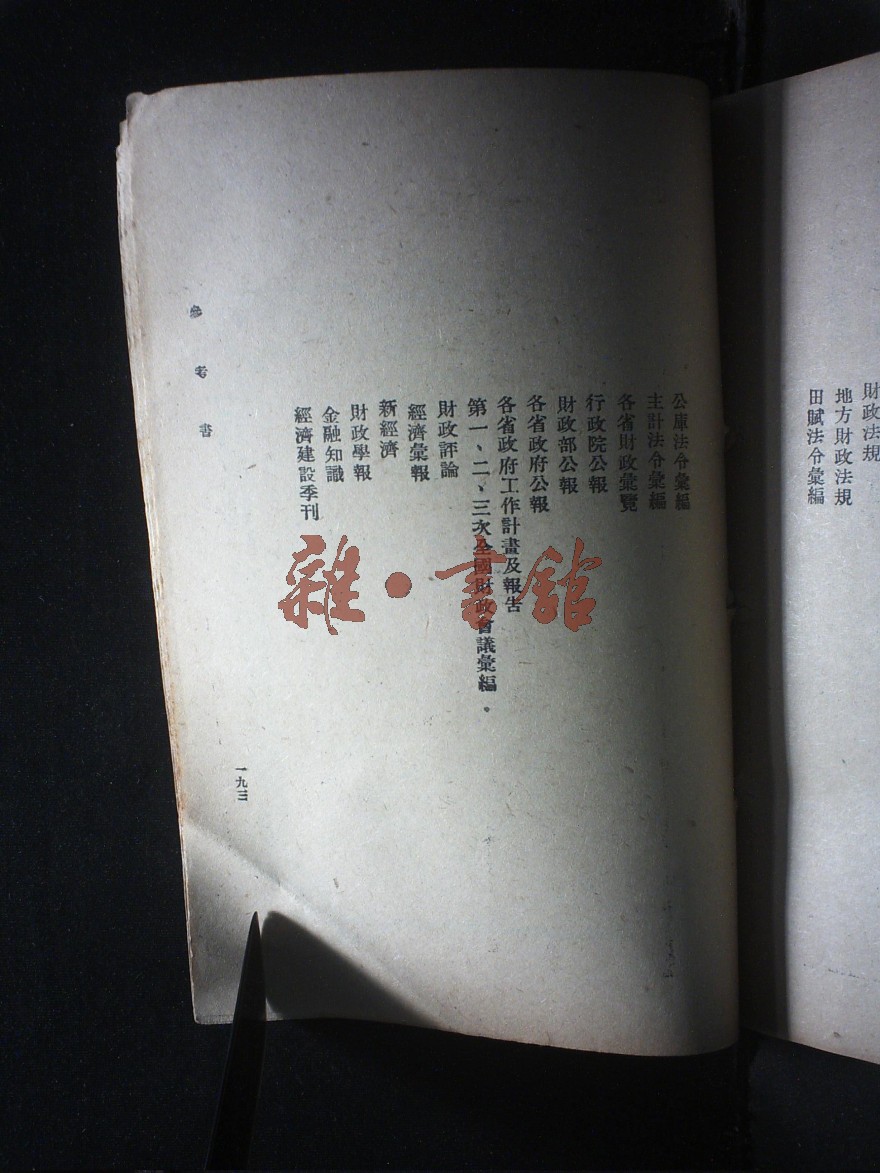 財政法規
地方財政法規
田賦法令彙編
公庫法令彙編
主計法令彙編
各省財政彙覽
行政院公報
財政部公報
各省政府公報
各省政府工作計畫及報告
第一、二、三次全國財政會議彙編。
財政評論
經濟彙報
新經濟
財政學報
金融知識
經濟建設季刊
參考書
一九三
雜·書館